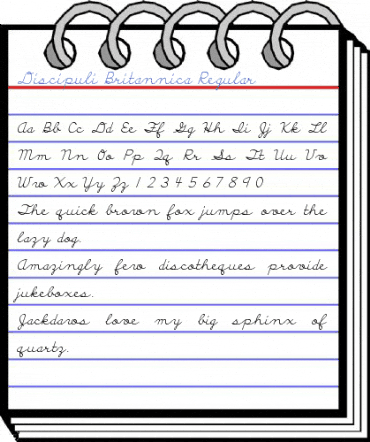 Discipuli Britannica Regular
Aa Bb Cc Dd Ee Ff Gg Hh Ii Jj Kk Ll
Mm Nn Oo Pp Qq Rr Ss Tt Uu Vv
Ww Xx Yy Zz 1 2 3 4 5 6 7 8 9 0
The quick brown fox jumps over the
lazy dog.
Amazingly few discotheques provide
jukeboxes.
Jackdaws love my big sphinx of
quartz.